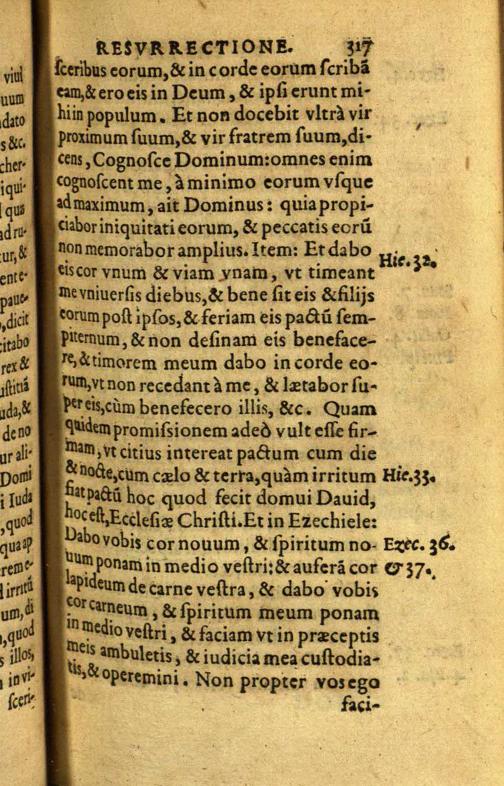 viui
uum
dato
s &c.
cher-
iqui-
l qua
ad ru-
tur, &
ente-
paue-
, dicit
citabo
rex &
uſtitiā
uda, &
de no
ur ali-
Domi
i Iuda
, quod
qua ap
reme-
d irritū
um, di
, quod
s illos,
n in vi-
ſceri-
RESVRRECTIONE. 317
ſceribus eorum, & in corde eorum ſcribā
eam, & ero eis in Deum, & ipſi erunt mi-
hi in populum. Et non docebit vltrà vir
proximum ſuum, & vir fratrem ſuum, di-
cens, Cognoſce Dominum: omnes enim
cognoſcent me, à minimo eorum vſque
ad maximum, ait Dominus: quia propi-
ciabor iniquitati eorum, & peccatis eorū
non memorabor amplius. Item: Et dabo
eis cor vnum & viam vnam, vt timeant
me vniuerſis diebus, & bene ſit eis & filijs
eorum poſt ipſos, & feriam eis pactū ſem-
piternum, & non deſinam eis beneface-
re, & timorem meum dabo in corde eo-
rum, vt non recedant à me, & lætabor ſu-
per eis, cùm benefecero illis, &c. Quam
quidem promiſſionem adeò vult eſſe fir-
mam, vt citius intereat pactum cum die
& nocte, cum cælo & terra, quàm irritum
fiat pactū hoc quod fecit domui Dauid,
hoc eſt, Eccleſiæ Chriſti. Et in Ezechiele:
Dabo vobis cor nouum, & ſpiritum no-
uum ponam in medio veſtri: & auferā cor
lapideum de carne veſtra, & dabo vobis
cor carneum, & ſpiritum meum ponam
in medio veſtri, & faciam vt in præceptis
meis ambuletis, & iudicia mea cuſtodia-
tis, & operemini. Non propter vos ego
faci-
Hie. 32.
Hie. 33.
Ezec. 36.
& 37.